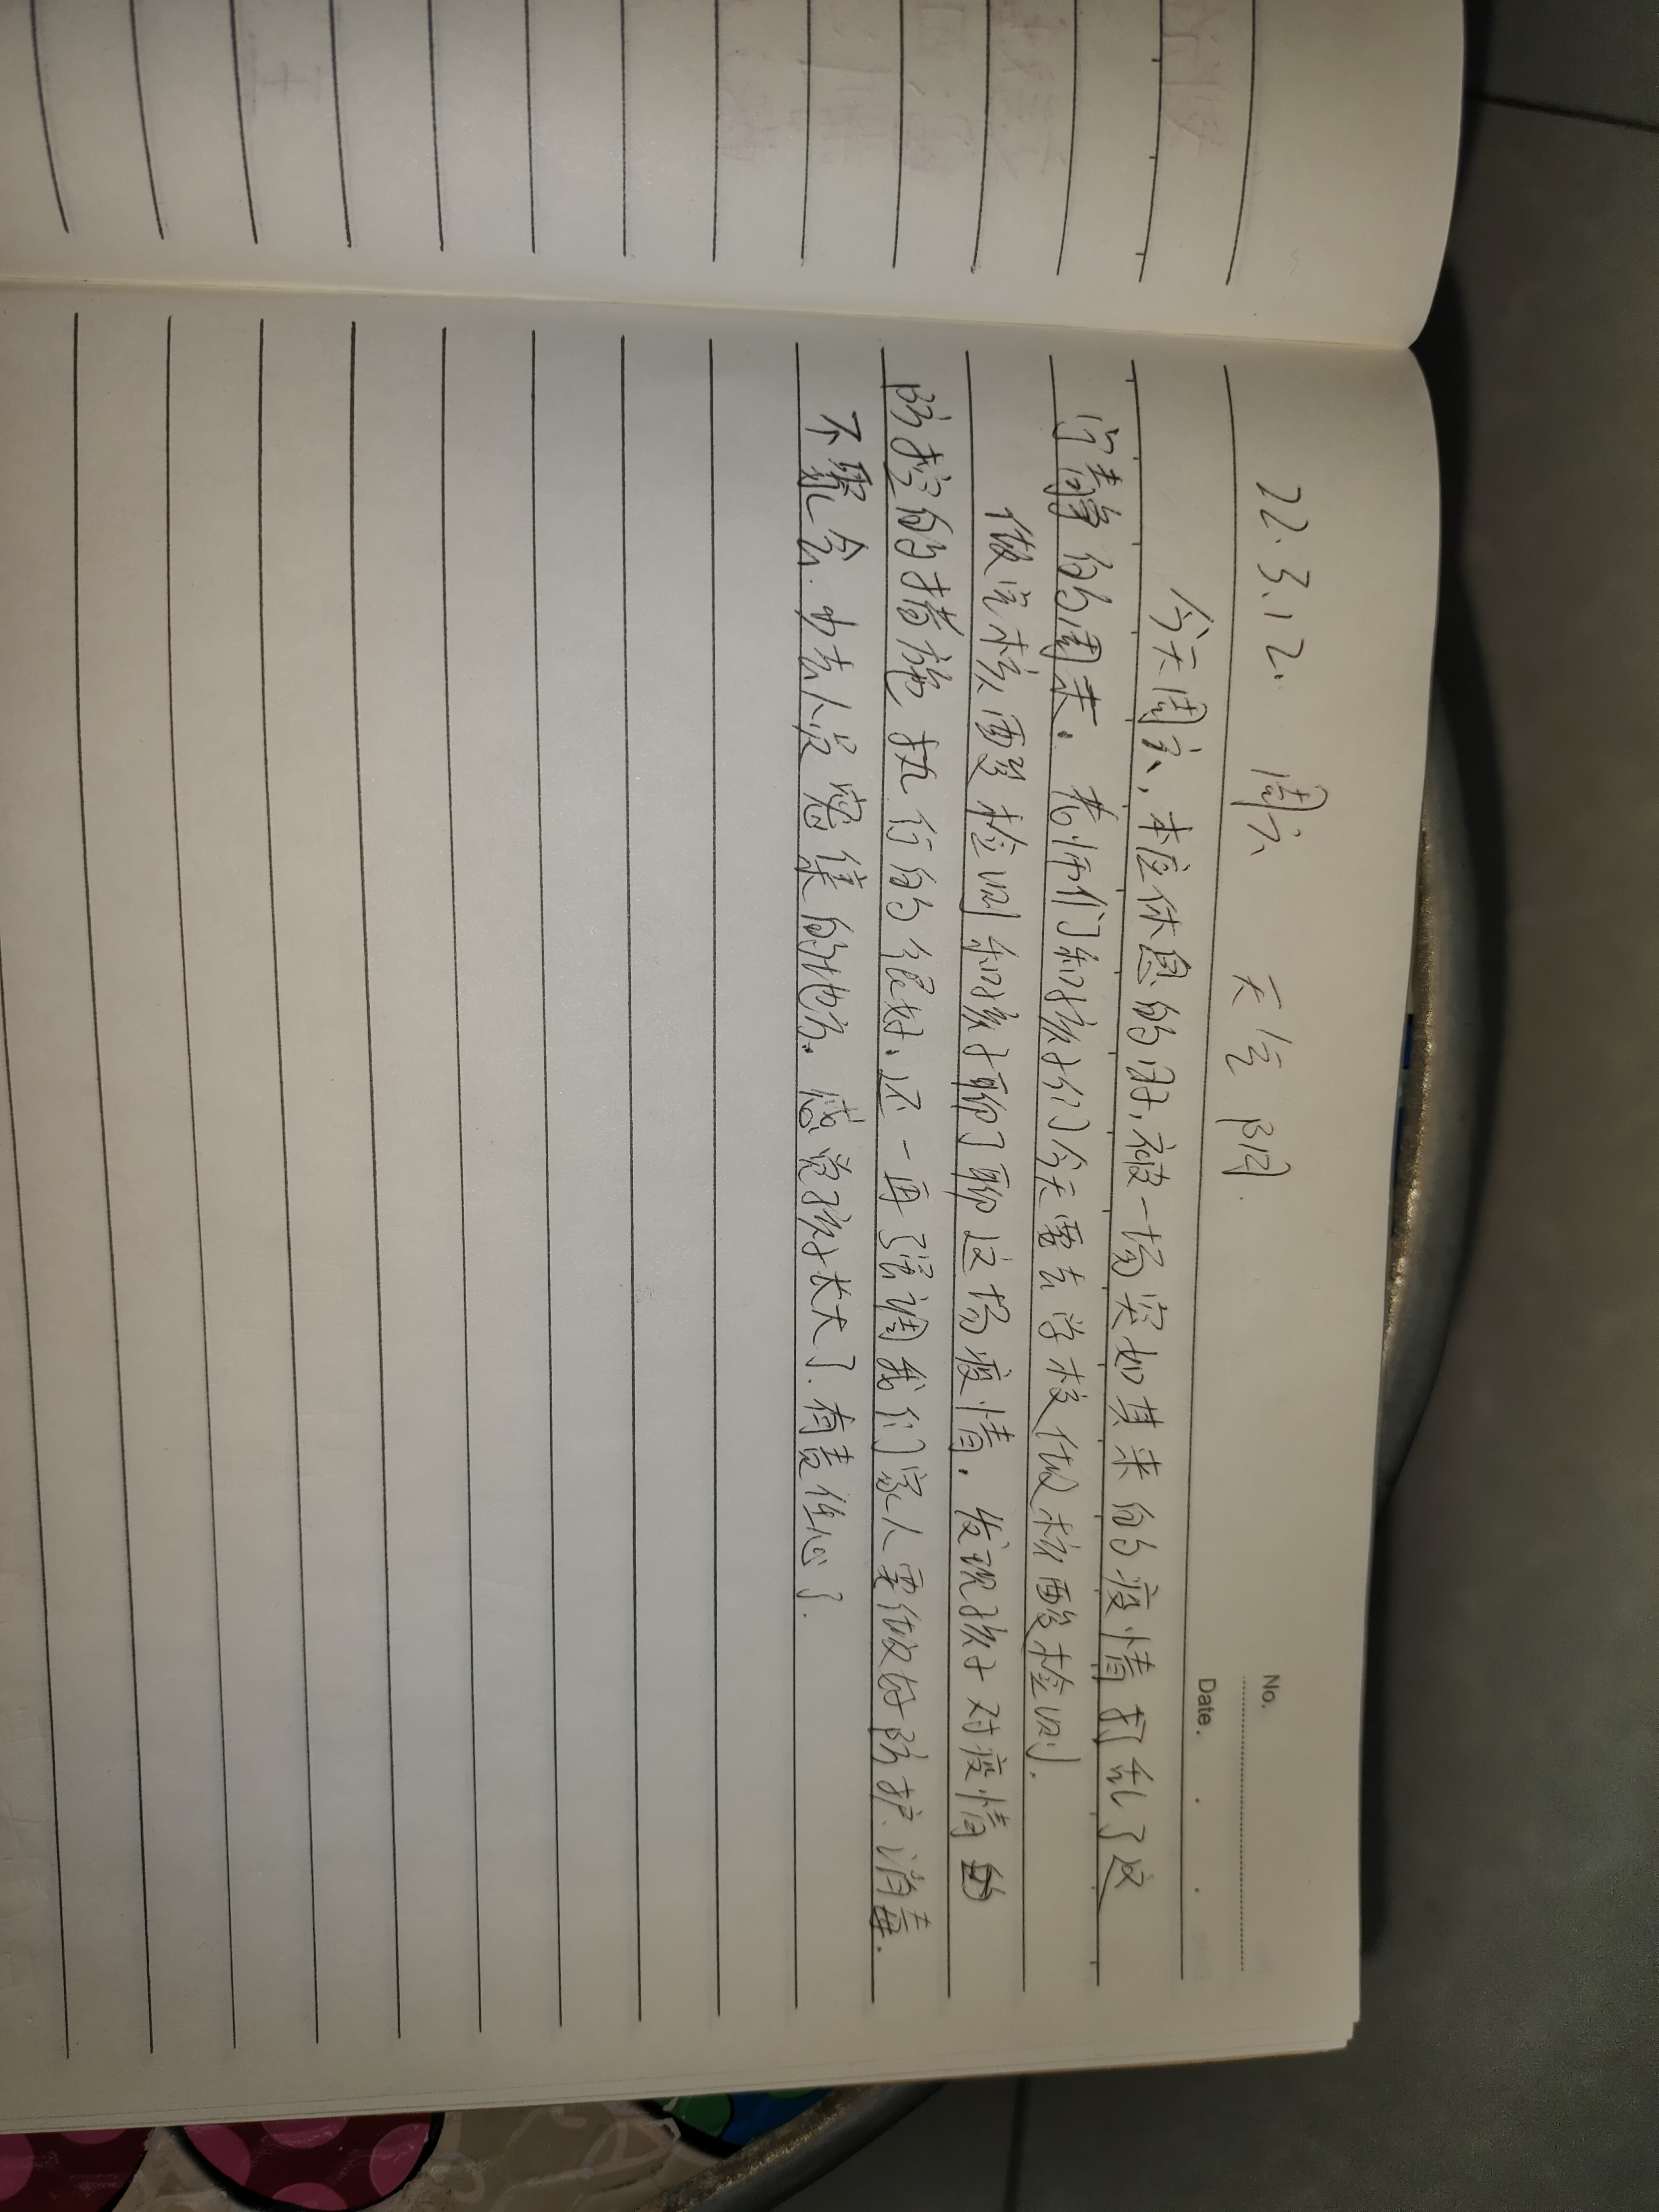 No.
Date.
22.3.12. 周六 天气 阴.
今天周六,本应休息的日,被一场突如其来的疫情打乱了这
宁静的周末。老师们和孩子们今天要去学校做核酸检测.
做完核酸检测和孩子聊了聊这场疫情.发现孩子对疫情的
防控的措施执行的很好.还一再强调我们家人要做好防护.消毒.
不聚会.少去人员密集的地方.感觉孩子长大了.有责任心了.